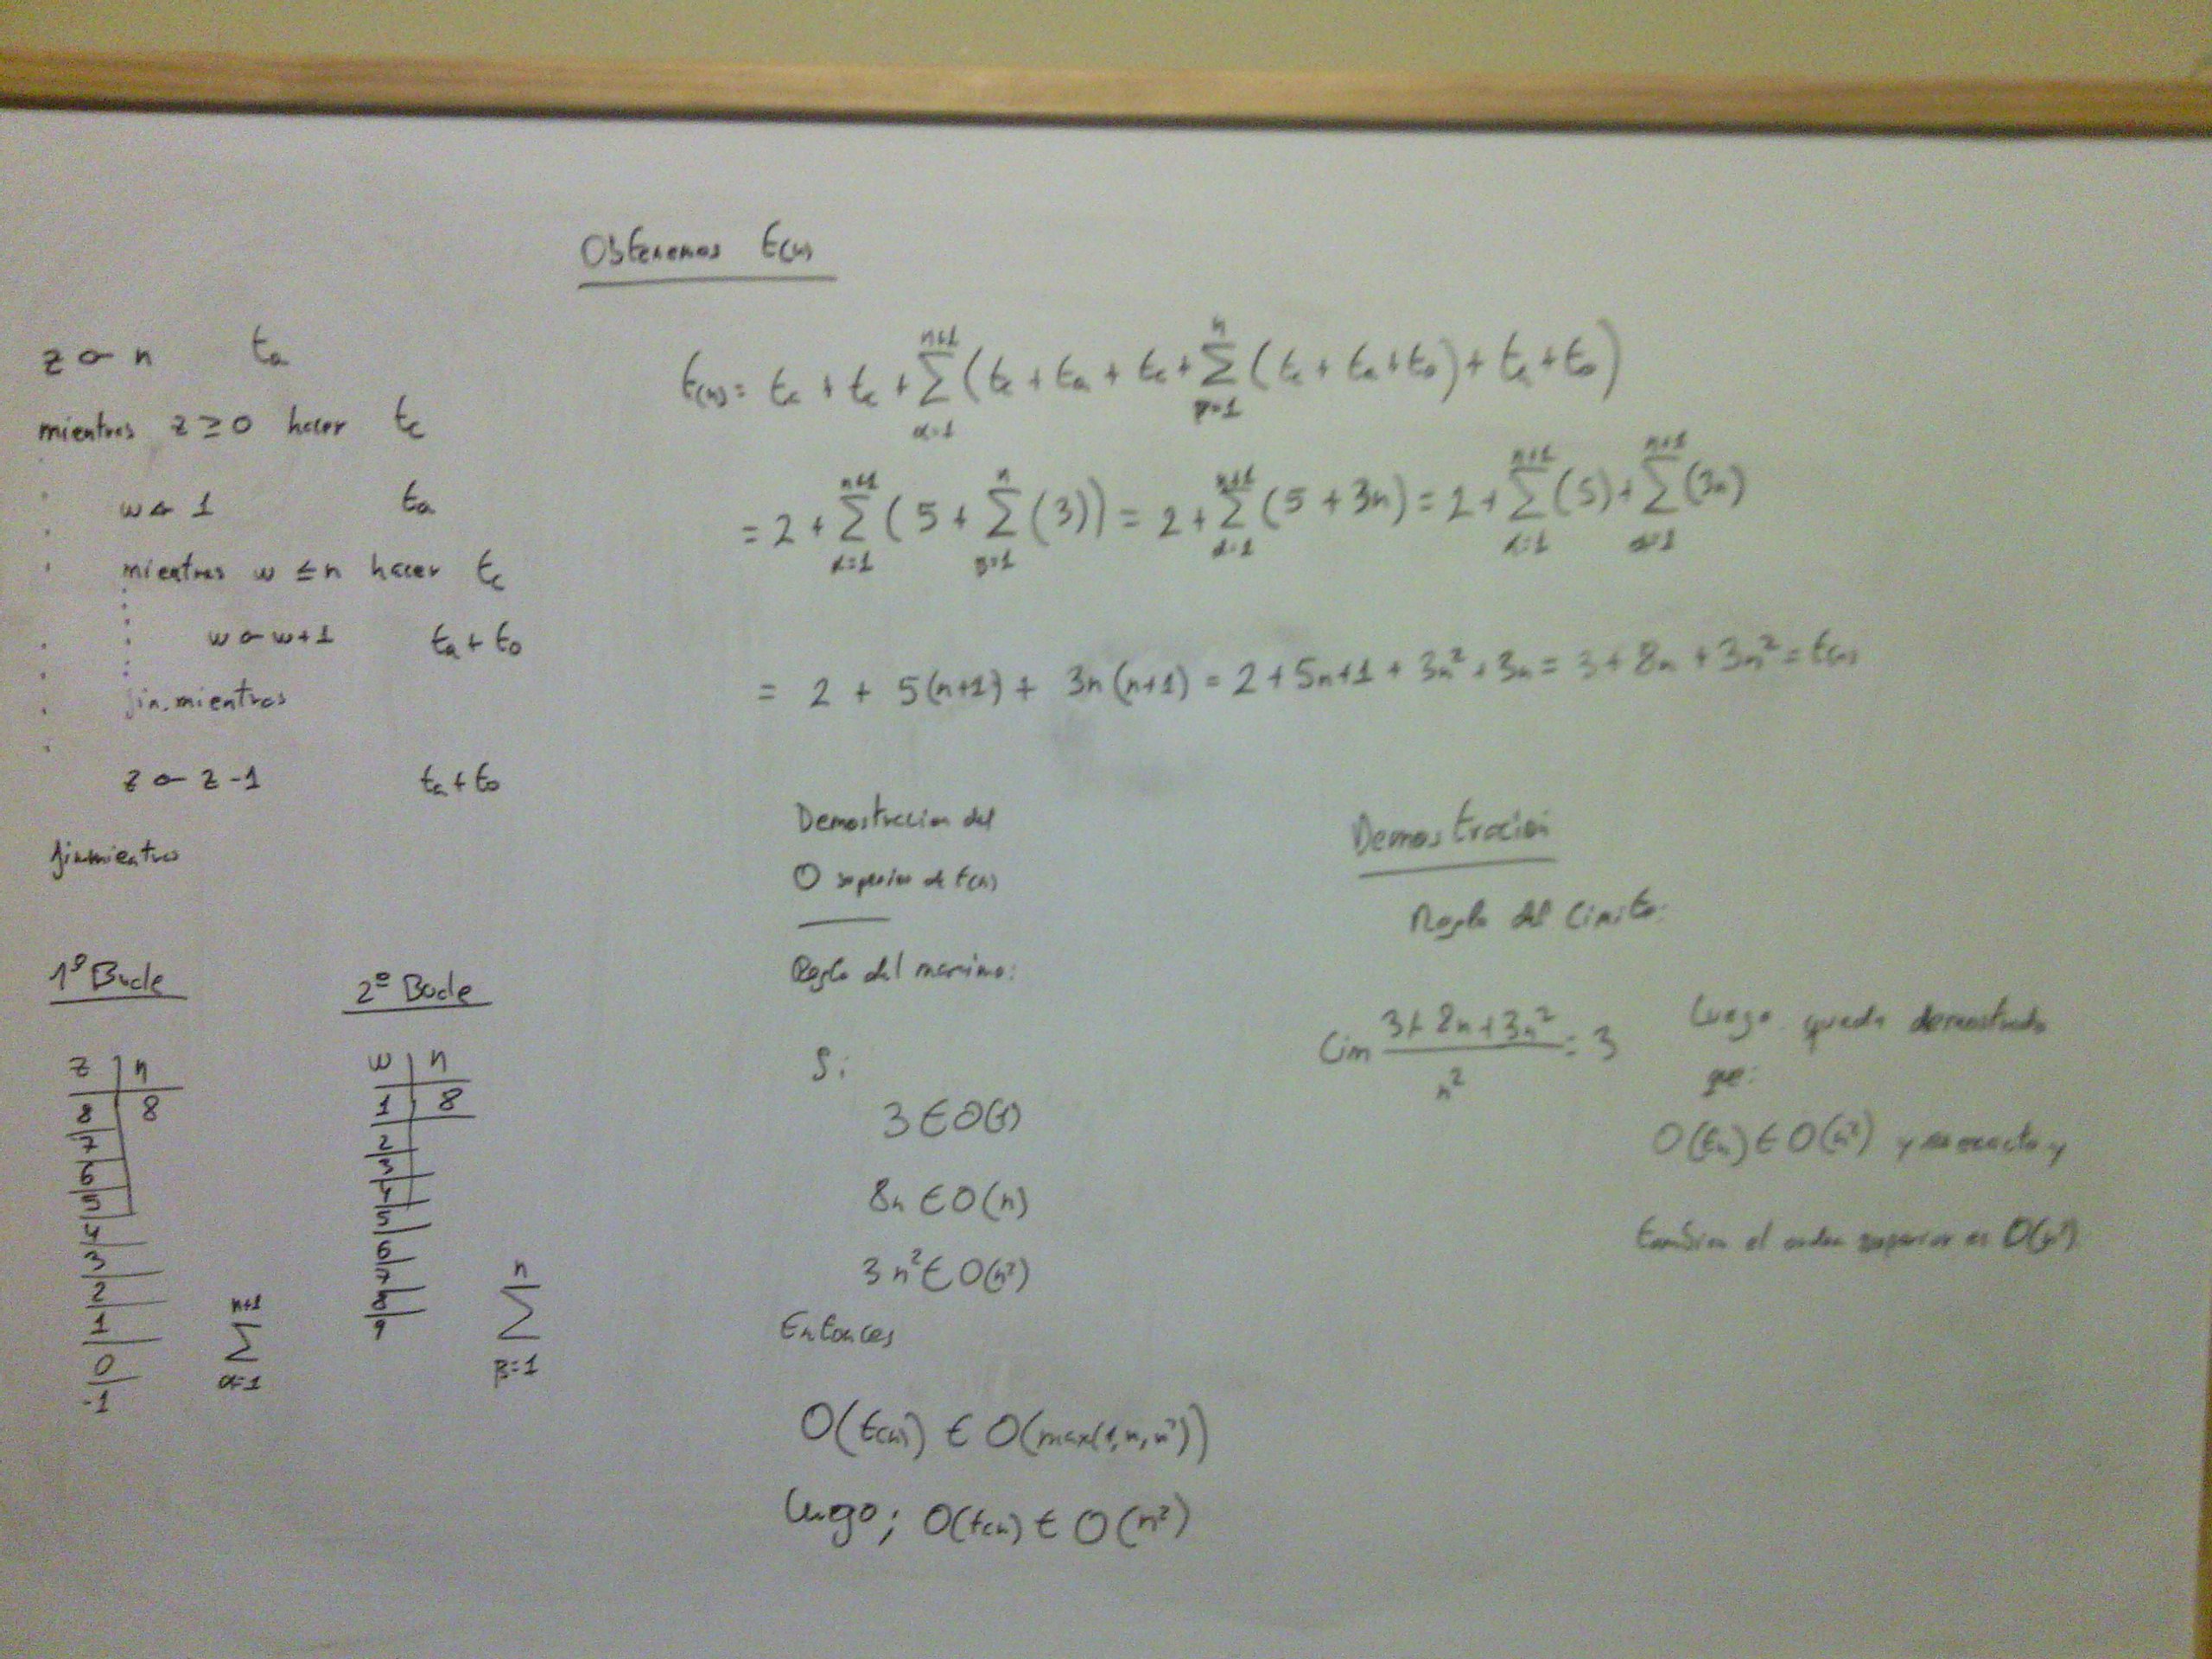 Obtenemos t(n)
z ← n ta
mientras z ≥ 0 hacer tc
w ← 1 ta
mientras w ≤ n hacer tc
w ← w+1 ta + to
fin.mientras
z ← z-1 ta + to
finmientras
1º Bucle
z n
8 8
7
6
5
4
3
2
1
0
-1
n+1
∑
α=1
2º Bucle
w n
1 8
2
3
4
5
6
7
8
9
n
∑
β=1
t(n) = ta + tc + ∑_{α=1}^{n+1} (tc + ta + tc + ∑_{β=1}^{n} (tc + ta + to) + ta + to)
= 2 + ∑_{α=1}^{n+1} (5 + ∑_{β=1}^{n} (3)) = 2 + ∑_{α=1}^{n+1} (5 + 3n) = 2 + ∑_{α=1}^{n+1} (5) + ∑_{α=1}^{n+1} (3n)
= 2 + 5(n+1) + 3n(n+1) = 2 + 5n+1 + 3n² + 3n = 3 + 8n + 3n² = t(n)
Demostracion del
O superior de t(n)
Regla del maximo:
Si
3 ∈ O(1)
8n ∈ O(n)
3n² ∈ O(n²)
Entonces
O(t(n)) ∈ O(max(1,n,n²))
luego; O(t(n) ∈ O(n²)
Demostracion
Regla del limite:
lim (3+8n+3n²)/n² = 3
luego queda demostrado
que:
O(tn) ∈ O(n²) y es exacto y
tambien el orden superior es O(n²)